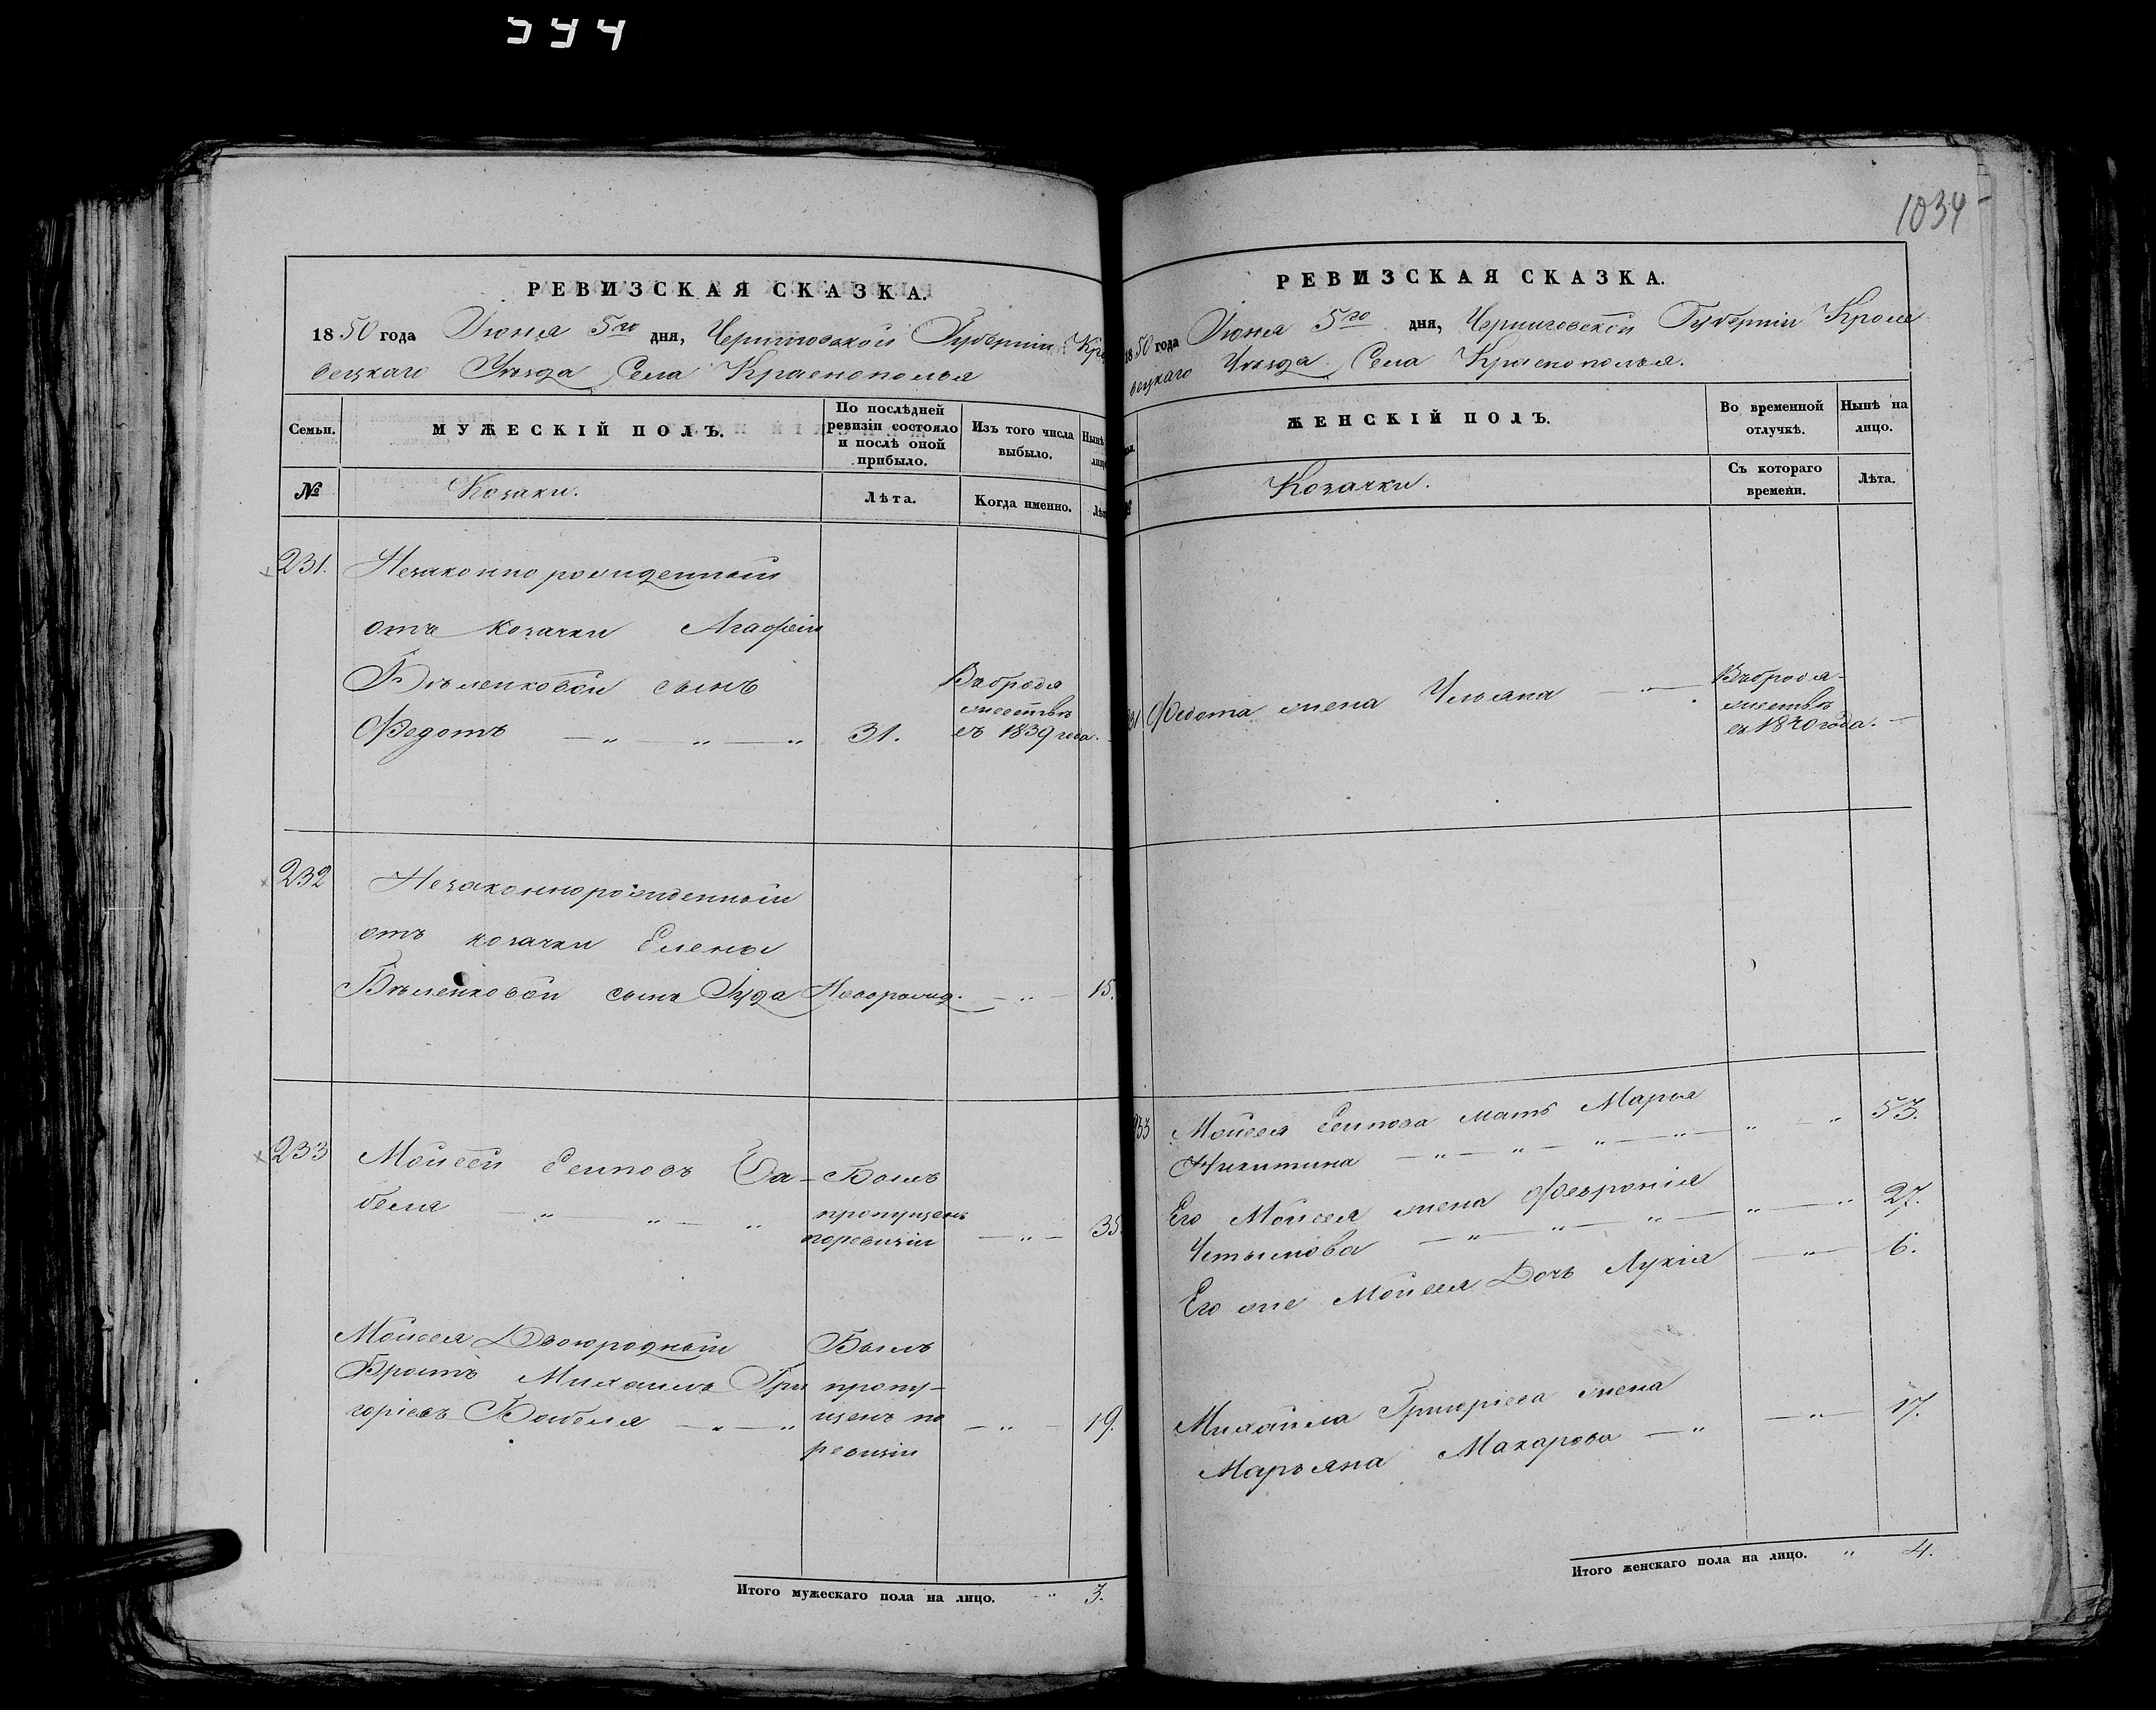 594
РЕВИЗСКАЯ СКАЗКА.
1850 года Июня 5го дня, Черниговской Губернии Кро
вецкаго Уѣзда Села Краснополья
Семьи.
МУЖЕСКІЙ ПОЛЪ.
По послѣдней ревизіи состояло и послѣ оной прибыло.
Изъ того числа выбыло.
Нынѣ лиц
№
Козаки.
Лѣта.
Когда именно.
Лѣт
231. Незаконно рожденный
отъ козачки Агафіи
Бѣленковой сынъ
Федотъ — „ — „ — „ 31.
Въ бродя
жествѣ
съ 1839 года.
232 Незаконнорожденный
отъ козачки Елены
Бѣленковой сынъ Іуда Новорожд. — „ — 15.
233 Мойсей Есиповъ Ба-
беля — „ — „ — „
Былъ
пропущенъ
поревизіи — „ — 35.
Мойсея Двоюродный
Братъ Михаилъ Гри
горіевъ Бабеля — „ — „
Былъ
пропу-
щенъ по
ревизіи — „ — 19.
Итого мужескаго пола на лицо. „ 3.
1034
РЕВИЗСКАЯ СКАЗКА.
1850 года Июня 5го дня, Черниговской Губерніи Кроле
вецкаго Уѣзда Села Краснополья.
ЖЕНСКІЙ ПОЛЪ.
Во временной отлучкѣ.
Нынѣ на лицо.
№
Козачки.
Съ котораго времени.
Лѣта.
231 Федота жена Ульяна — „ —
Въ бродя-
жествѣ
съ 1840 года. —
233 Мойсея Есипова мать Марья
Никитина — „ — „ — „ — „ — „ — „ 53.
Его Мойсея жена Февронія
— „ — „ — „ — „ — „ 27.
Его же Мойсея Дочь Лукія — „ — 6.
Михайла Григоріева жена
Марьяна Макарова — „ — „ — 17.
Итого женскаго пола на лицо. „ 4.